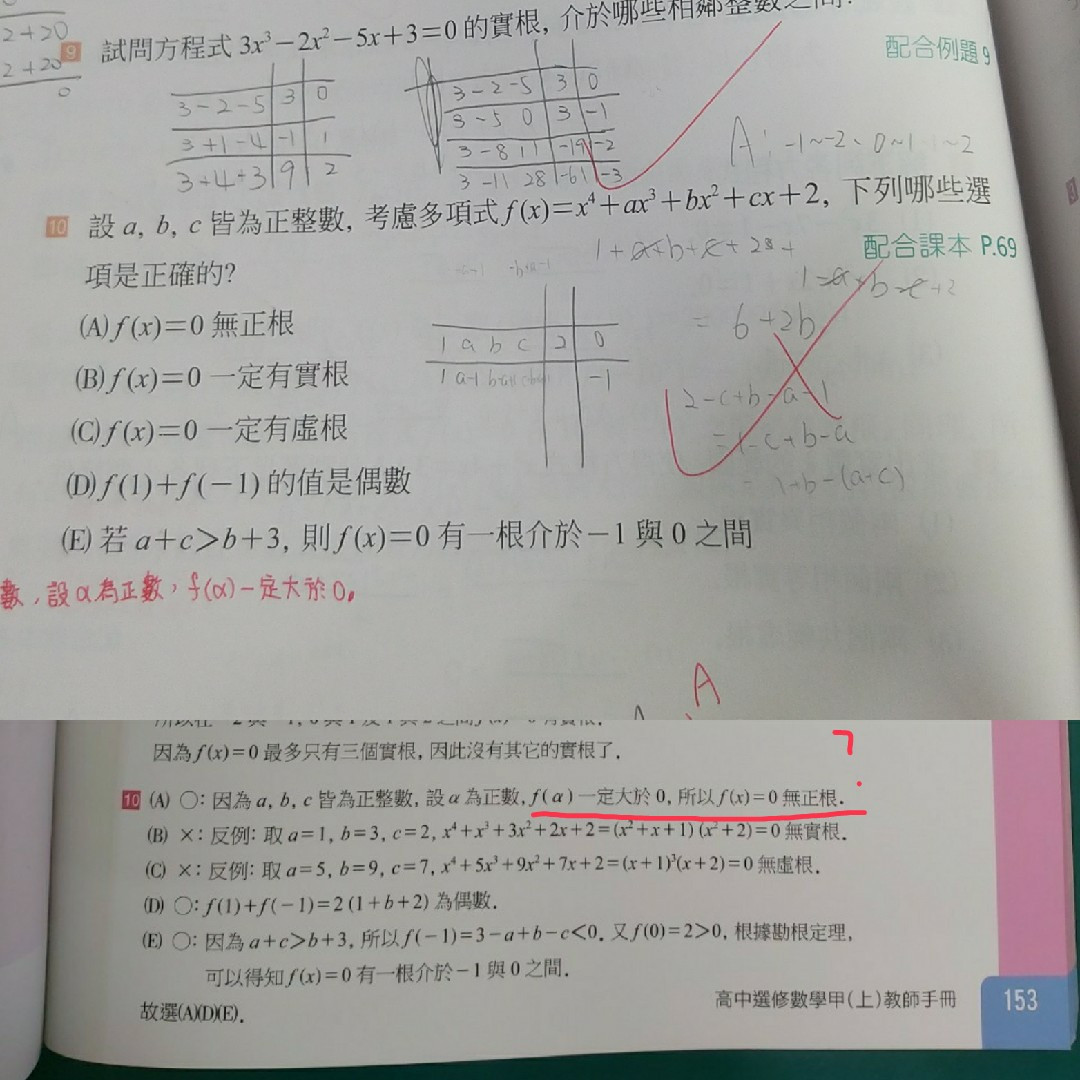 2+20
2+20
0
9 試問方程式 3x³－2x²－5x+3=0 的實根, 介於哪些相鄰整數之間?
配合例題 9
3-2-5 3 0
3+1-4 -1 1
3+4+3 9 2
3-2-5 3 0
3-5 0 3 -1
3-8 11 -19 -2
3-11 28 -61 -3
A: -1~-2、0~1 1~2
10 設 a, b, c 皆為正整數, 考慮多項式 f(x)=x⁴+ax³+bx²+cx+2, 下列哪些選
配合課本 P.69
項是正確的?
1+a+b+c+2+
1-a+b-c+2
= 6+2b
(A) f(x)=0 無正根
1 a b c 2 0
(B) f(x)=0 一定有實根
1 a-1 -1
2-c+b-a-1
(C) f(x)=0 一定有虛根
=1-c+b-a
(D) f(1)+f(－1) 的值是偶數
= 1+b-(a+c)
(E) 若 a+c>b+3, 則 f(x)=0 有一根介於－1 與 0 之間
數，設α為正數，f(α)一定大於0。
A
因為 f(x)=0 最多只有三個實根, 因此沒有其它的實根了.
10 (A) ○: 因為 a, b, c 皆為正整數, 設 α 為正數, f(α) 一定大於 0, 所以 f(x)=0 無正根.
(B) ×: 反例: 取 a=1, b=3, c=2, x⁴+x³+3x²+2x+2=(x²+x+1)(x²+2)=0 無實根.
(C) ×: 反例: 取 a=5, b=9, c=7, x⁴+5x³+9x²+7x+2=(x+1)³(x+2)=0 無虛根.
(D) ○: f(1)+f(－1)=2(1+b+2) 為偶數.
(E) ○: 因為 a+c>b+3, 所以 f(－1)=3－a+b－c<0. 又 f(0)=2>0, 根據勘根定理,
可以得知 f(x)=0 有一根介於－1 與 0 之間.
故選(A)(D)(E).
高中選修數學甲(上)教師手冊 153